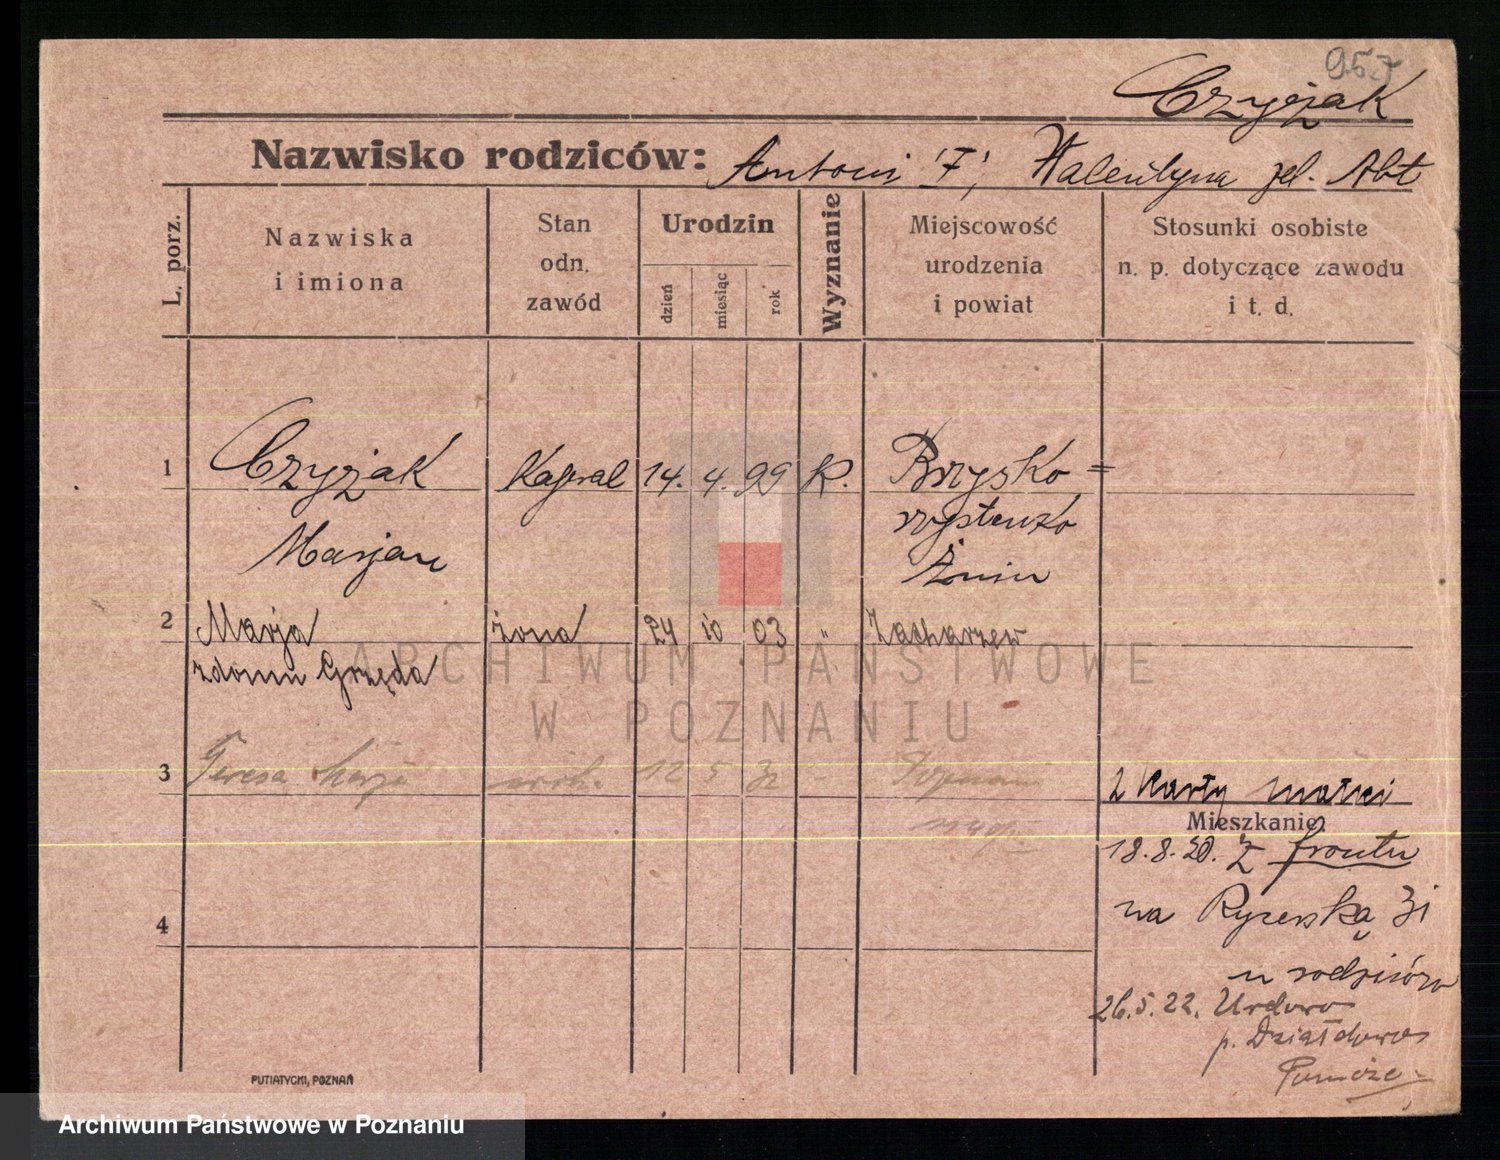 957
Czyżak
Nazwisko rodziców: Antoni 'F', Walentyna zd. Abt
L. porz.
Nazwiska
i imiona
Stan
odn.
zawód
Urodzin
dzień
miesiąc
rok
Wyznanie
Miejscowość
urodzenia
i powiat
Stosunki osobiste
n. p. dotyczące zawodu
i t. d.
1 Czyżak Kapral 14. 4. 99 K. Brzysko=
rzystewko
Marjan Żnin
2 Marja żona 24 10 03 " Zacharzew
zdomu Grzęda
3 Teresa Marja 12 5 32 Poznan
2 Karty
Mieszkanie
18.8.20. Z frontu
na Rycerską 31
u rodziców
26.5.22.
p. Działdowo
Pomorze
4
PUTIATYCKI, POZNAŃ
ARCHIWUM PAŃSTWOWE
W POZNANIU
Archiwum Państwowe w Poznaniu